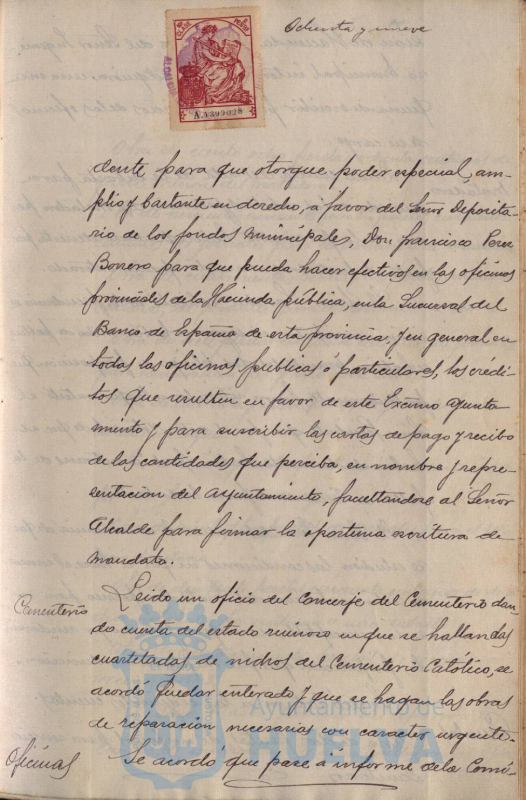 Ochenta y nueve
A.4399028
dente para que otorgue poder especial, am-
plio y bastante en derecho, a favor del Señor Deposita-
rio de los fondos municipales, Don Francisco Perez
Borrero para que pueda hacer efectivos en las oficinas
provinciales de la Hacienda pública, en la Sucursal del
Banco de España de esta provincia, y en general en
todas las oficinas públicas o particulares, los crédi-
tos que resulten en favor de este Excmo Ayunta-
miento y para suscribir las cartas de pago y recibo
de las cantidades que perciba, en nombre y repre-
sentacion del Ayuntamiento, facultandose al Señor
Alcalde para firmar la oportuna escritura de
mandato.
Cementerio
Leido un oficio del Conserje del Cementerio dan-
do cuenta del estado ruinoso en que se hallan dos
cuarteladas de nichos del Cementerio Católico, se
acordó quedar enterado y que se hagan las obras
de reparación necesarias con caracter urgente.-
Oficinas
Se acordó que pase a informe de la Comi-
Ayuntamiento de
HUELVA